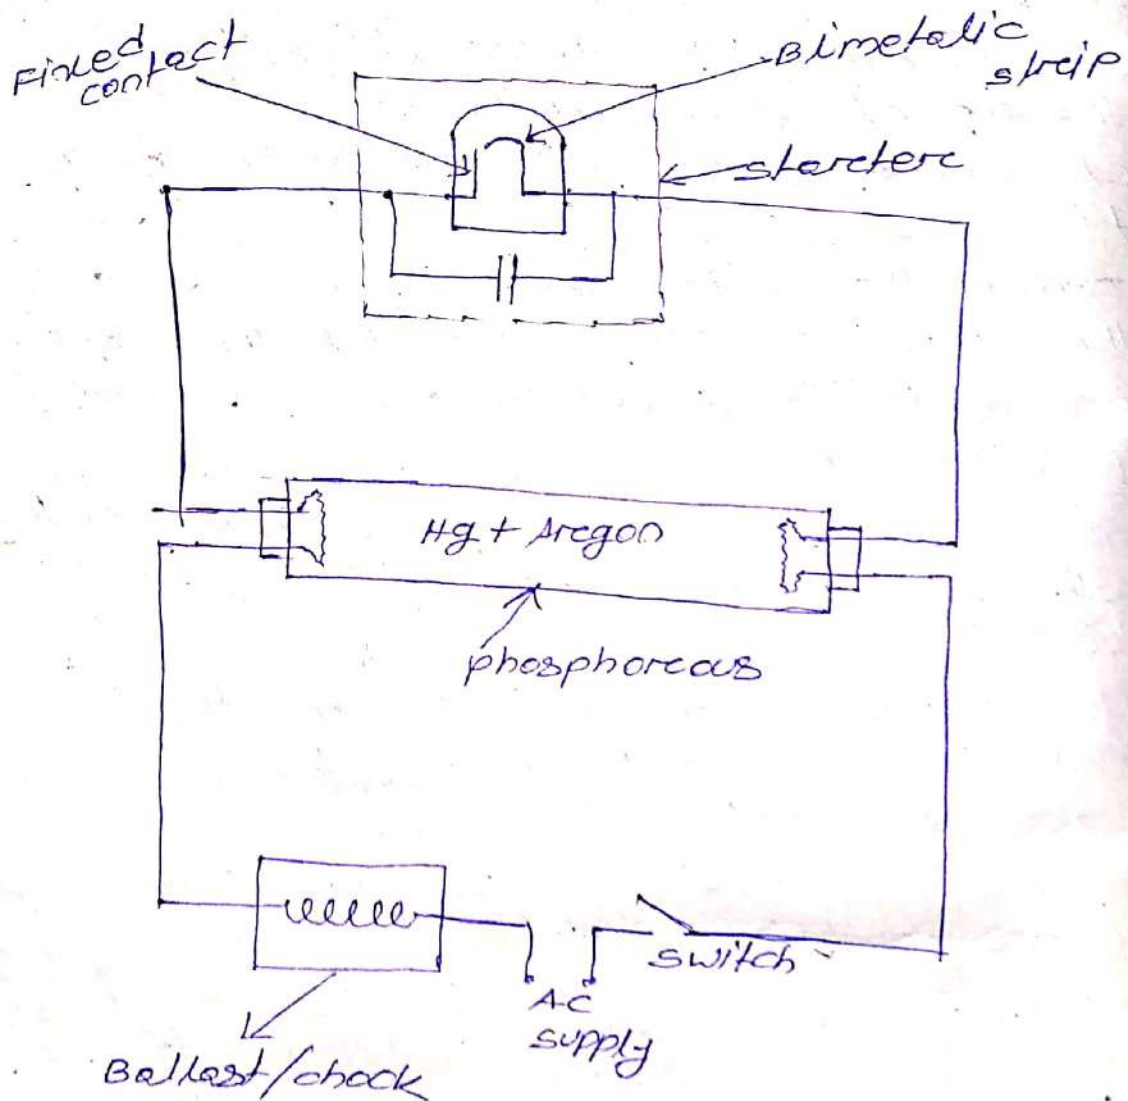 Fixed
contact
Bimetalic
streip
starcterc
Hg + Arcgon
phosphorcous
switch
A-C
supply
Ballast/chock